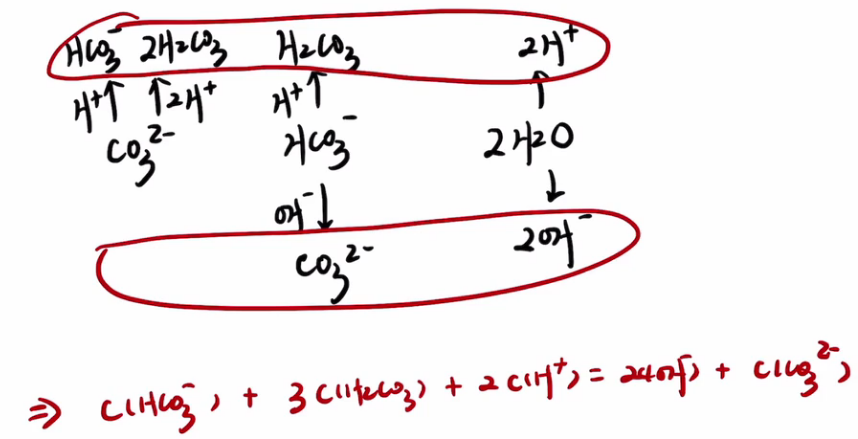 HCO₃⁻ 2H₂CO₃ H₂CO₃ 2H⁺
H⁺↑ ↑2H⁺ H⁺↑ ↑
CO₃²⁻ HCO₃⁻ 2H₂O
OH⁻↓ ↓
CO₃²⁻ 2OH⁻
⇒ C(HCO₃⁻) + 3C(H₂CO₃) + 2C(H⁺) = 2C(OH⁻) + C(CO₃²⁻)